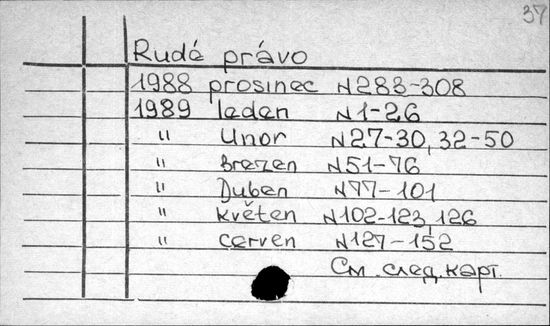 37
Rudé právo
1988 prosinec N283-308
1989 leden N1-26
" Únor N27-30, 32-50
" Brezen N51-76
" Duben N77-101
" květen N102-123, 126
" cerven N127-152
См. след. карт.